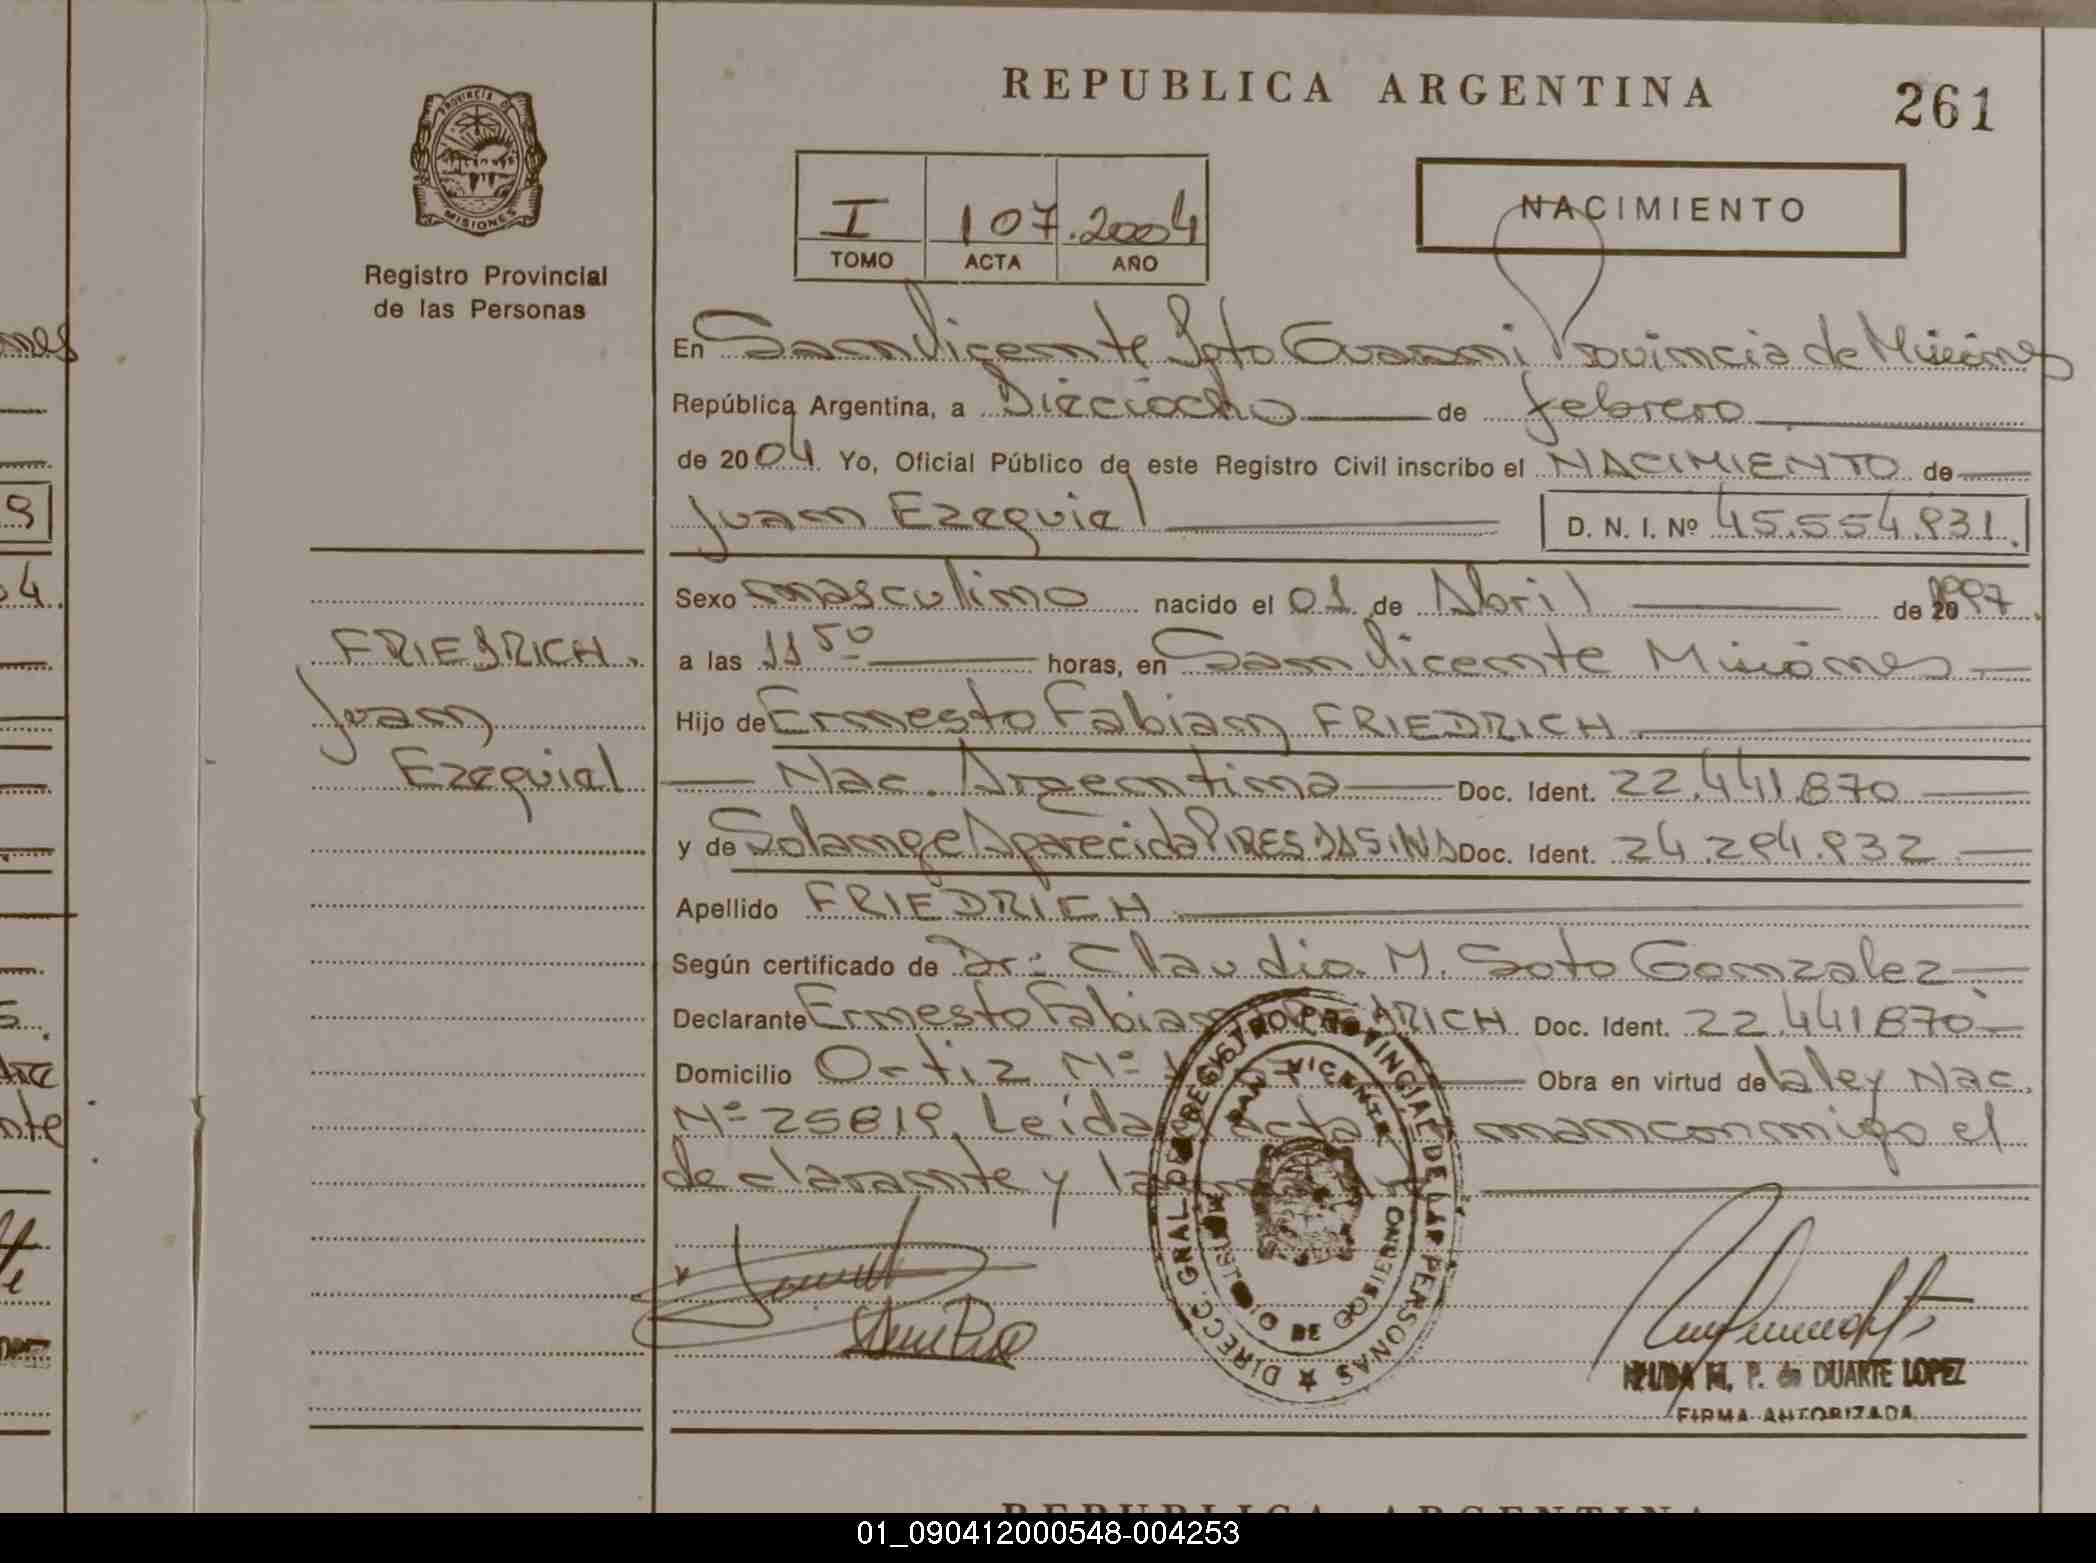 REPUBLICA ARGENTINA
261
PROVINCIA DE
MISIONES
Registro Provincial
de las Personas
I 107 .2004
TOMO ACTA AÑO
NACIMIENTO
En San Vicente Dpto Guarani Provincia de Misiones
República Argentina, a Dieciocho de febrero
de 2004 Yo, Oficial Público de este Registro Civil inscribo el NACIMIENTO de
Juan Ezequiel D. N. I. Nº 45.554.831.
Sexo masculino nacido el 01 de Abril de 20 1997
a las 11 50 horas, en San Vicente Misiones
Hijo de Ernesto Fabian FRIEDRICH
Nac. Argentina Doc. Ident. 22.441.870
y de Solange Aparecida PIRES DA SILVA Doc. Ident. 24.294.832
Apellido FRIEDRICH
Según certificado de Dr: Claudio M. Soto Gonzalez
Declarante Ernesto Fabian Doc. Ident. 22.441870
Domicilio Ortiz Nº Obra en virtud de la ley Nac.
Nº 25819. Leída acta conmigo el
declarante y la
FRIEDRICH.
Juan
Ezequiel
DIRECC. GRAL. DEL REGISTRO PROVINCIAL DE LAS PERSONAS
SAN VICENTE
DE
DUARTE LOPEZ
FIRMA AUTORIZADA
REPUBLICA ARGENTINA
01_090412000548-004253